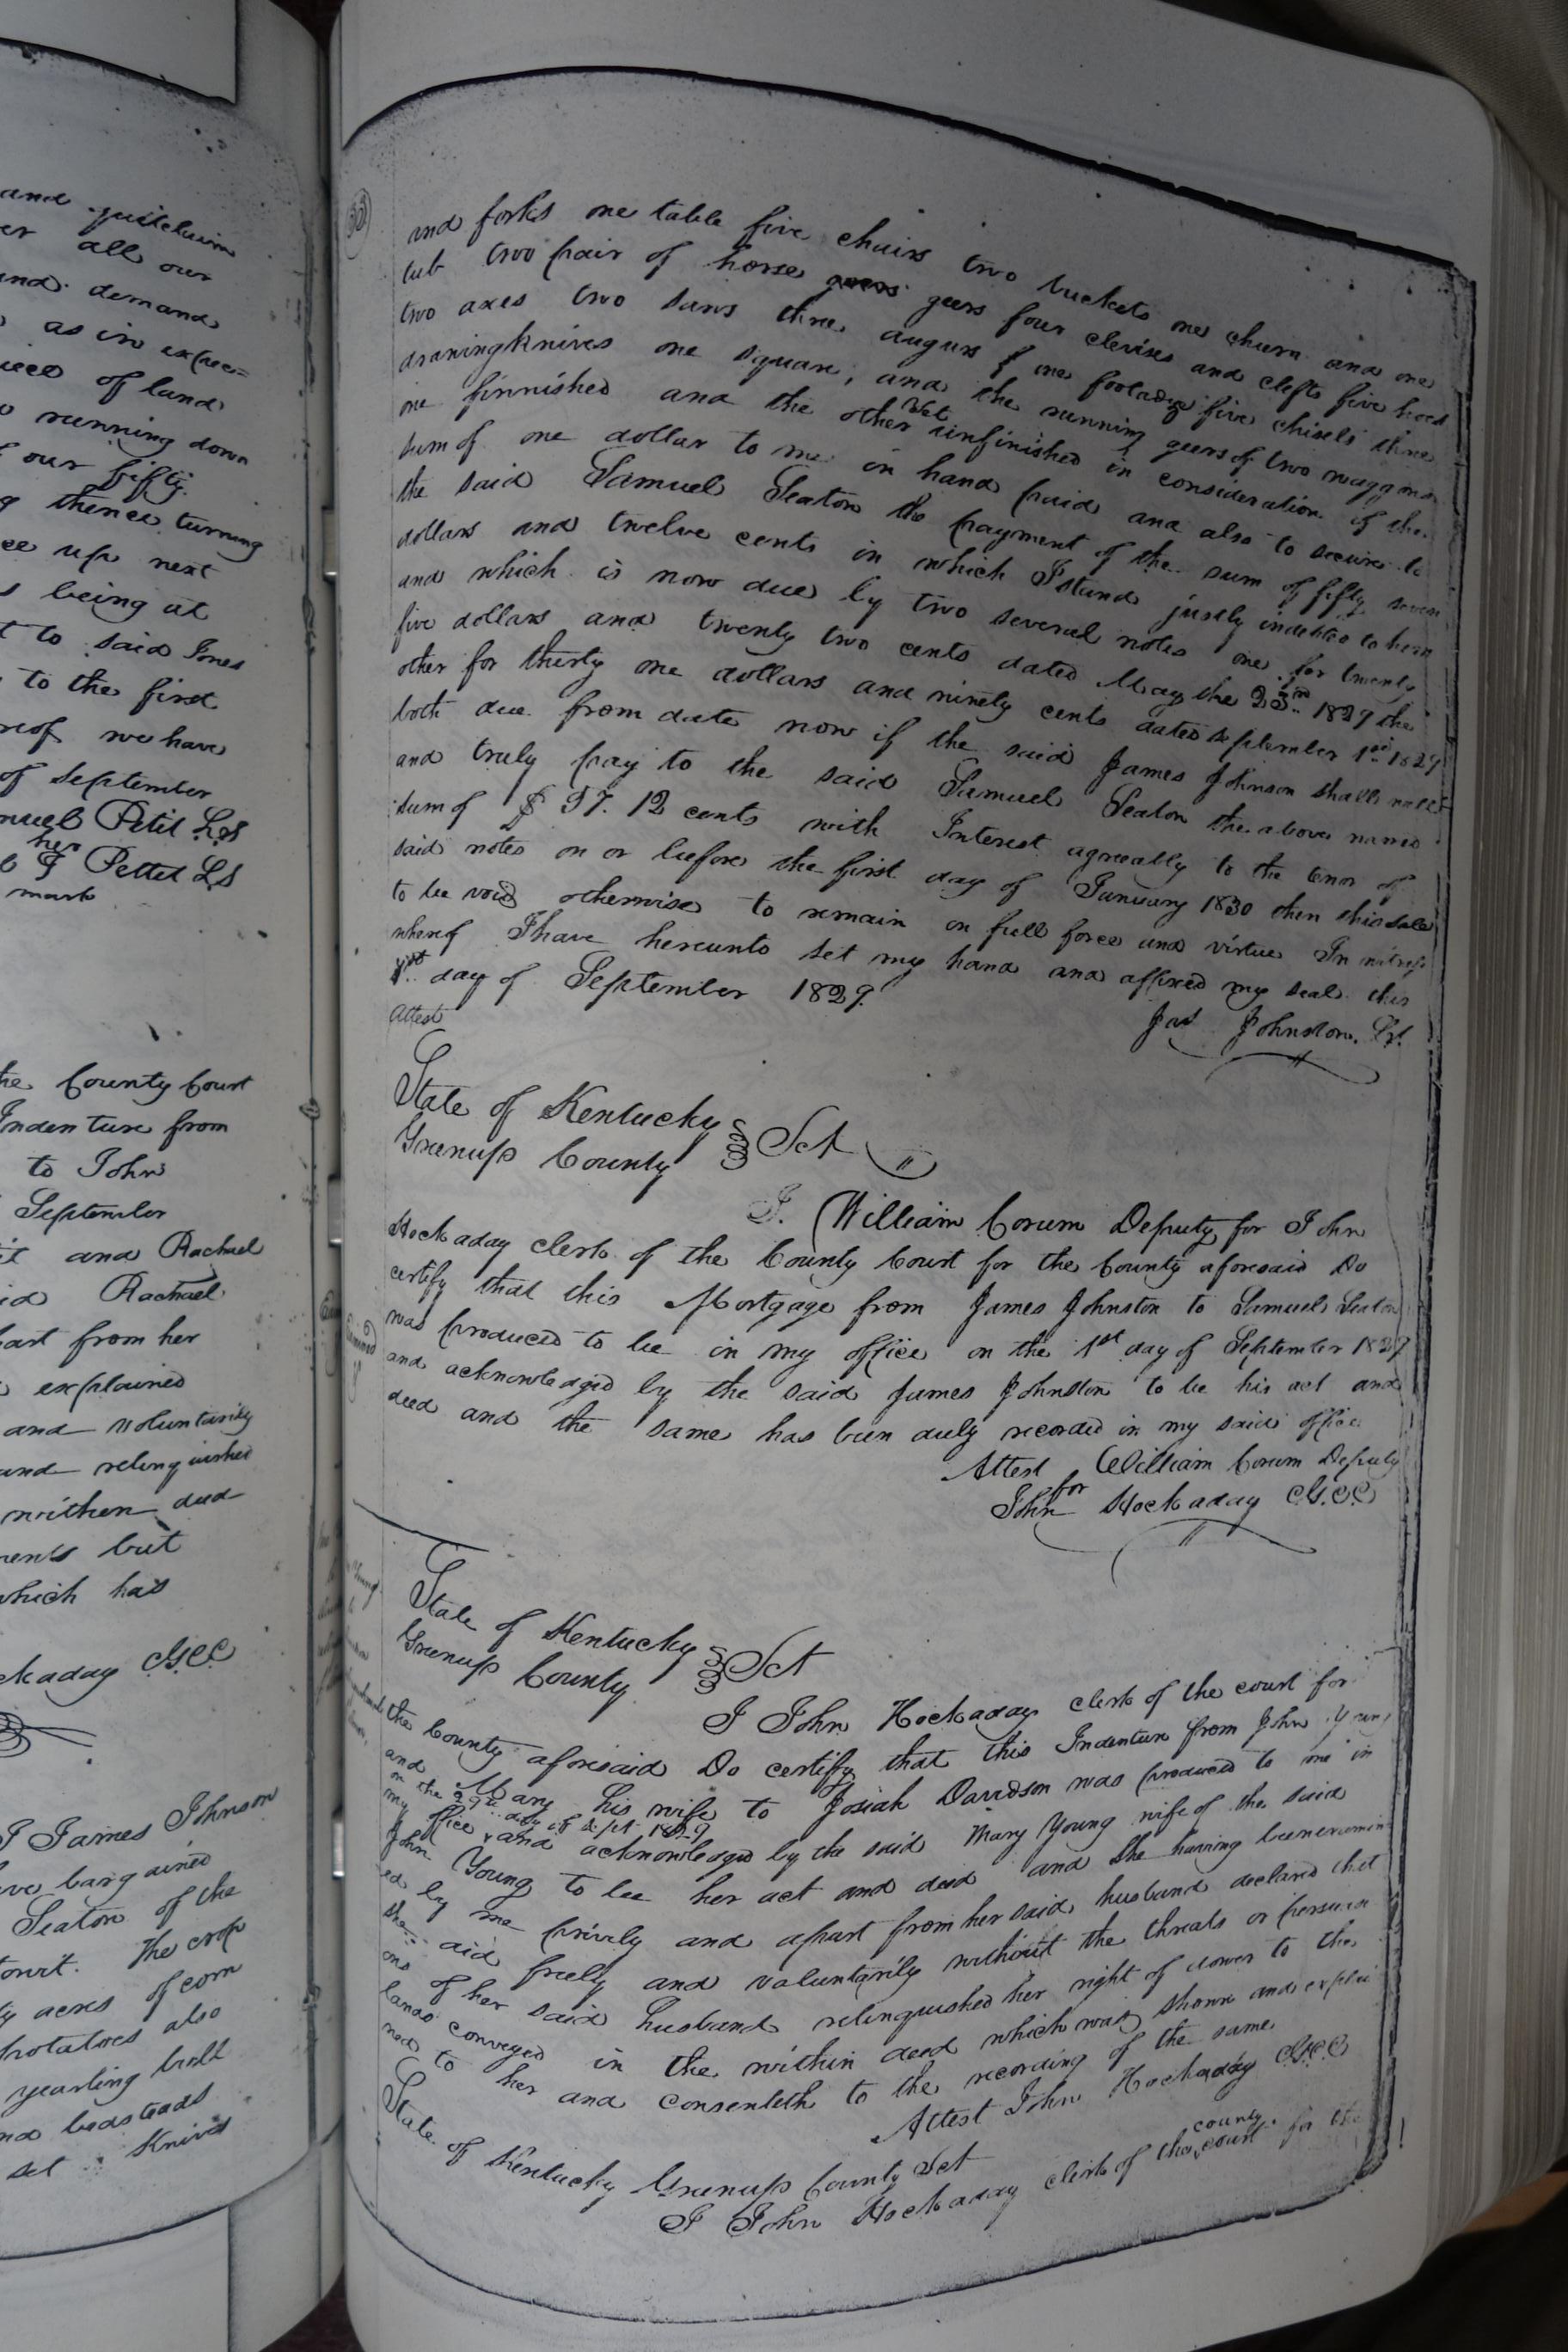 and quitclaim
er all our
and demand
as in expec=
iece of land
running down
our fifty
g thence turning
ce up next
s being at
t to said Jones
to the first
reof we have
of September
muel Petit LS
her
Pettet LS
mark
he County Court
Indenture from
to John
September
it and Rachael
id Rachael
part from her
explained
and voluntarily
and relinquished
within deed
ments but
which has
ckaday C.G.C.C
I James Johnson
ve bargained
Seaton of the
towit. The crop
ty acres of corn
potatoes also
yearling bull
nd bedsteads
set Knives
and forks one table five chairs two buckets one churn and one
tub two pair of horse geers four clevises and clefts five hoes
two axes two saws three augurs & one footadze five chisels three
drawingknives one square, and the running geers of two waggons
one finnished and the other yet unfinished in consideration of the
sum of one dollar to me in hand paid and also to secure to
the said Samuel Seaton the payment of the sum of fifty seven
dollars and twelve cents in which I stand justly indebted to him
and which is now due by two several notes one for twenty
five dollars and twenty two cents dated May the 23rd 1829 the
other for thirty one dollars and ninety cents dated September 1st 1829
both due from date now if the said James Johnson shall well
and truly pay to the said Samuel Seaton the above named
sum of $57.12 cents with Interest agreeably to the tenor of
said notes on or before the first day of January 1830 then this sale
to be void otherwise to remain on full force and virtue In witness
whereof I have hereunto set my hand and affixed my seal this
1st day of September 1829.
Attest
Jas Johnston. LS.
State of Kentucky
Greenup County Sct
I. William Corum Deputy for John
Hockaday clerk of the County Court for the County aforesaid Do
certify that this Mortgage from James Johnston to Samuel Seaton
was produced to be in my office on the 1st day of September 1829
and acknowledged by the said James Johnston to be his act and
deed and the same has been duly recorded in my said office
Attest William Corum Deputy
for
John Hockaday C.G.C.C
State of Kentucky
Greenup County Sct
I John Hockaday clerk of the court for
the County aforesaid Do certify that this Indenture from John Young
and Mary his wife to Josiah Davidson was produced to me in
on the 29th day of Sept 1829
my office and acknowledged by the said Mary Young wife of the said
John Young to be her act and deed and she having been examin
ed by me privily and apart from her said husband declared that
she did freely and voluntarily without the threats or persuasi
ons of her said husband relinquished her right of dower to the
lands conveyed in the within deed which was shown and explai
ned to her and consenteth to the recording of the same
Attest John Hockaday C.G.C.C
State of Kentucky Greenup County Sct
county
I John Hockaday clerk of the court for the